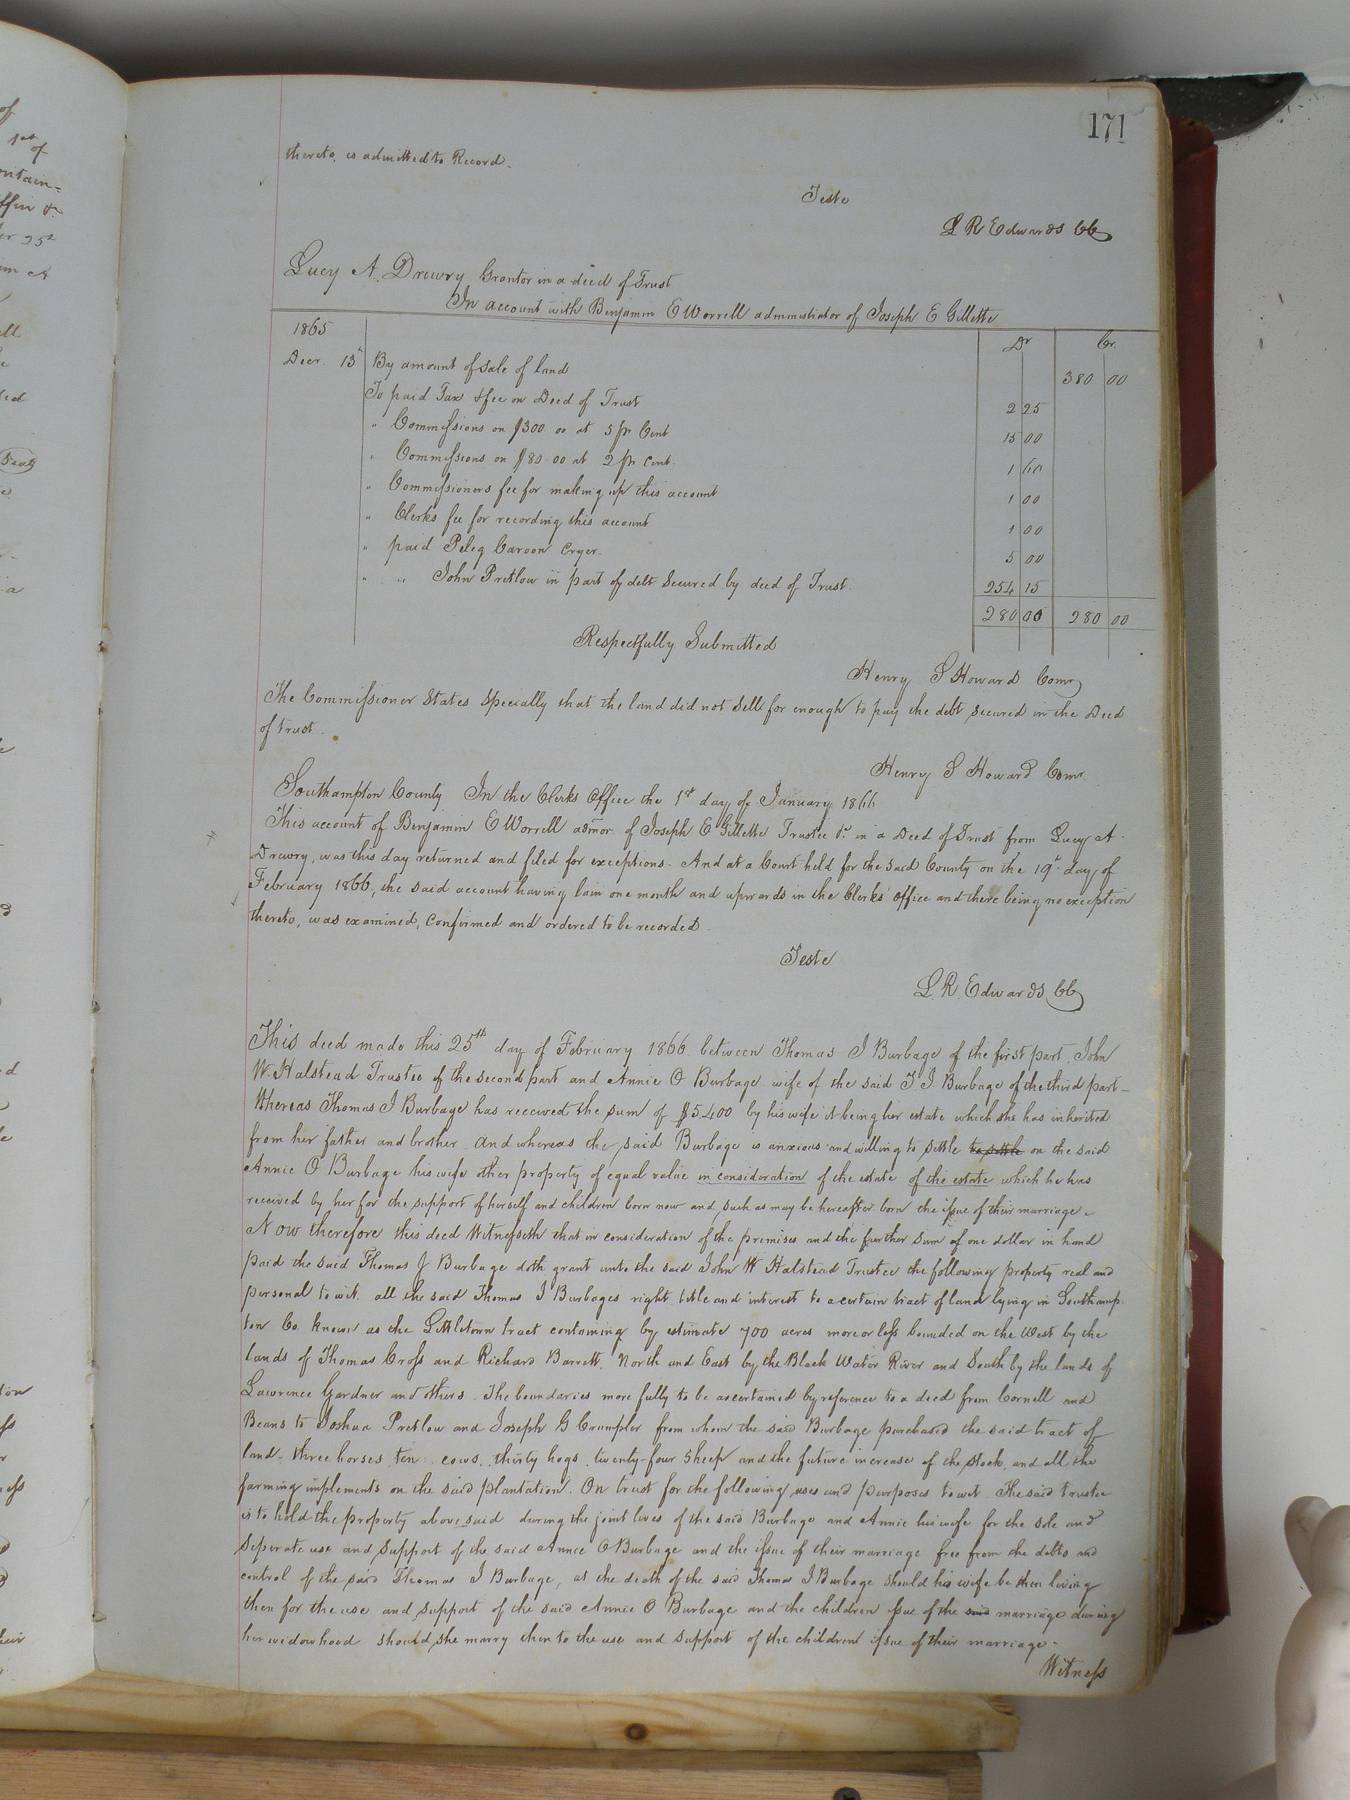 171
thereto, is admitted to Record.
Teste
L R Edwards CC
Lucy A. Drewry Grantor in a deed of Trust
In account with Benjamin E Worrell administrator of Joseph E Gillette
1865
Dr Cr.
Decr. 15" By amount of sale of land 380 00
To paid Tax & fee on Deed of Trust 2 25
" Commissions on $300 00 at 5 pr Cent 15 00
" Commissions on $80 00 at 2 pr cent. 1 60
" Commissioners fee for making up this account 1 00
" Clerks fee for recording this account 1 00
" paid Peleg Carson Cryer. 5 00
" " John Pretlow in part of debt secured by deed of Trust 254 15
280 00 280 00
Respectfully Submitted
Henry S Howard Comr
The Commissioner States Specially that the land did not sell for enough to pay the debt secured in the Deed
of trust.
Henry S Howard Comr.
Southampton County In the Clerks Office the 1st day of January 1866
This account of Benjamin E Worrell admor. of Joseph E Gillette Trustee &c in a Deed of Trust from Lucy A.
Drewry, was this day returned and filed for exceptions. And at a Court held for the said County on the 19th day of
February 1866, the said account having lain one month and upwards in the Clerks' office and there being no exception
thereto, was examined, Confirmed and ordered to be recorded.
Teste
L. R. Edwards CC
This deed made this 25th day of February 1866 between Thomas J Burbage of the first part, John
W. Halstead Trustee of the second part and Annie O Burbage wife of the said T J Burbage of the third part—
Whereas Thomas J Burbage has received the sum of $5.400 by his wife it being her estate which she has inherited
from her father and brother and whereas the said Burbage is anxious and willing to settle to settle on the said
Annie O Burbage his wife other property of equal value in consideration of the estate of the estate which he has
received by her for the support of herself and children born now and such as may be hereafter born the issue of their marriage.
Now therefore this deed Witnesseth that in consideration of the premises and the further sum of one dollar in hand
paid the said Thomas J Burbage doth grant unto the said John W Halstead Trustee the following property real and
personal to wit. all the said Thomas J Burbages right title and interest to a certain tract of land lying in Southamp-
ton Co. known as the Littletown tract containing by estimate 700 acres more or less bounded on the West by the
lands of Thomas Cross and Richard Barrett, North and East by the Black Water River and South by the lands of
Lawrence Gardner and others. The boundaries more fully to be ascertained by reference to a deed from Cornell and
Beans to Joshua Pretlow and Joseph G Crumpler from whom the said Burbage purchased the said tract of
land. three horses, ten cows, thirty hogs, twenty-four sheep and the future increase of the stock, and all the
farming implements on the said plantation. On trust for the following uses and purposes to wit. The said trustee
is to hold the property above said during the joint lives of the said Burbage and Annie his wife for the sole and
Seperate use and support of the said Annie O Burbage and the issue of their marriage free from the debts and
control of the said Thomas J Burbage, at the death of the said Thomas J Burbage should his wife be then living
then for the use and support of the said Annie O Burbage and the children issue of the said marriage during
her widowhood should she marry then to the use and support of the children issue of their marriage.
Witness